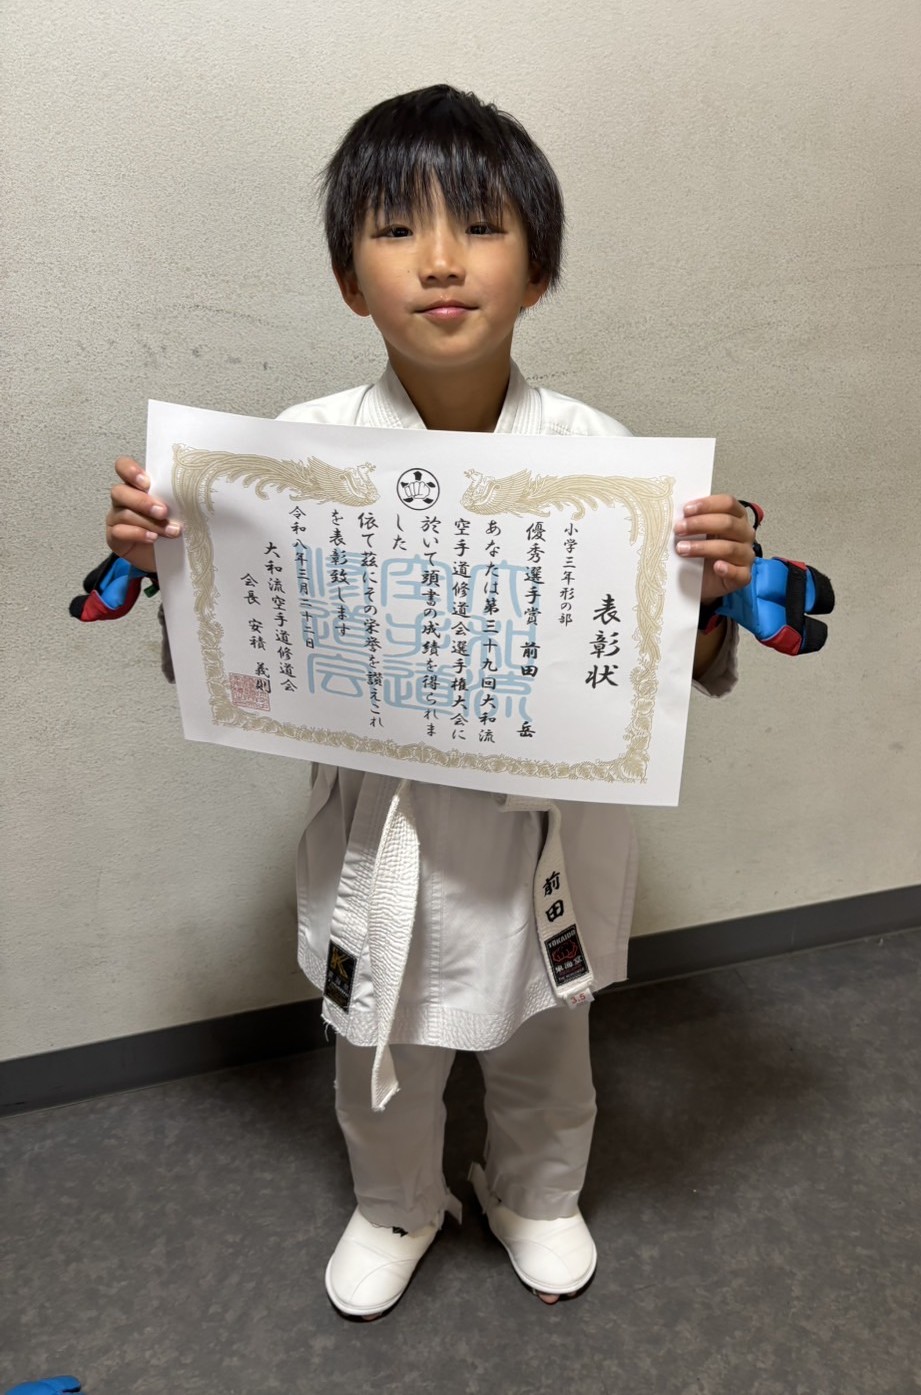 表彰状
小学三年形の部
優秀選手賞 前田 岳
あなたは第三十九回大和流
空手道修道会選手権大会に
於いて頭書の成績を得られま
した
依て茲にその栄誉を讃えこれ
を表彰致します
令和八年三月二十二日
大和流空手道修道会
会長 安積 義則
大和流
空手道
修道会
前田
TOKAIDO
東海堂
3.5
K